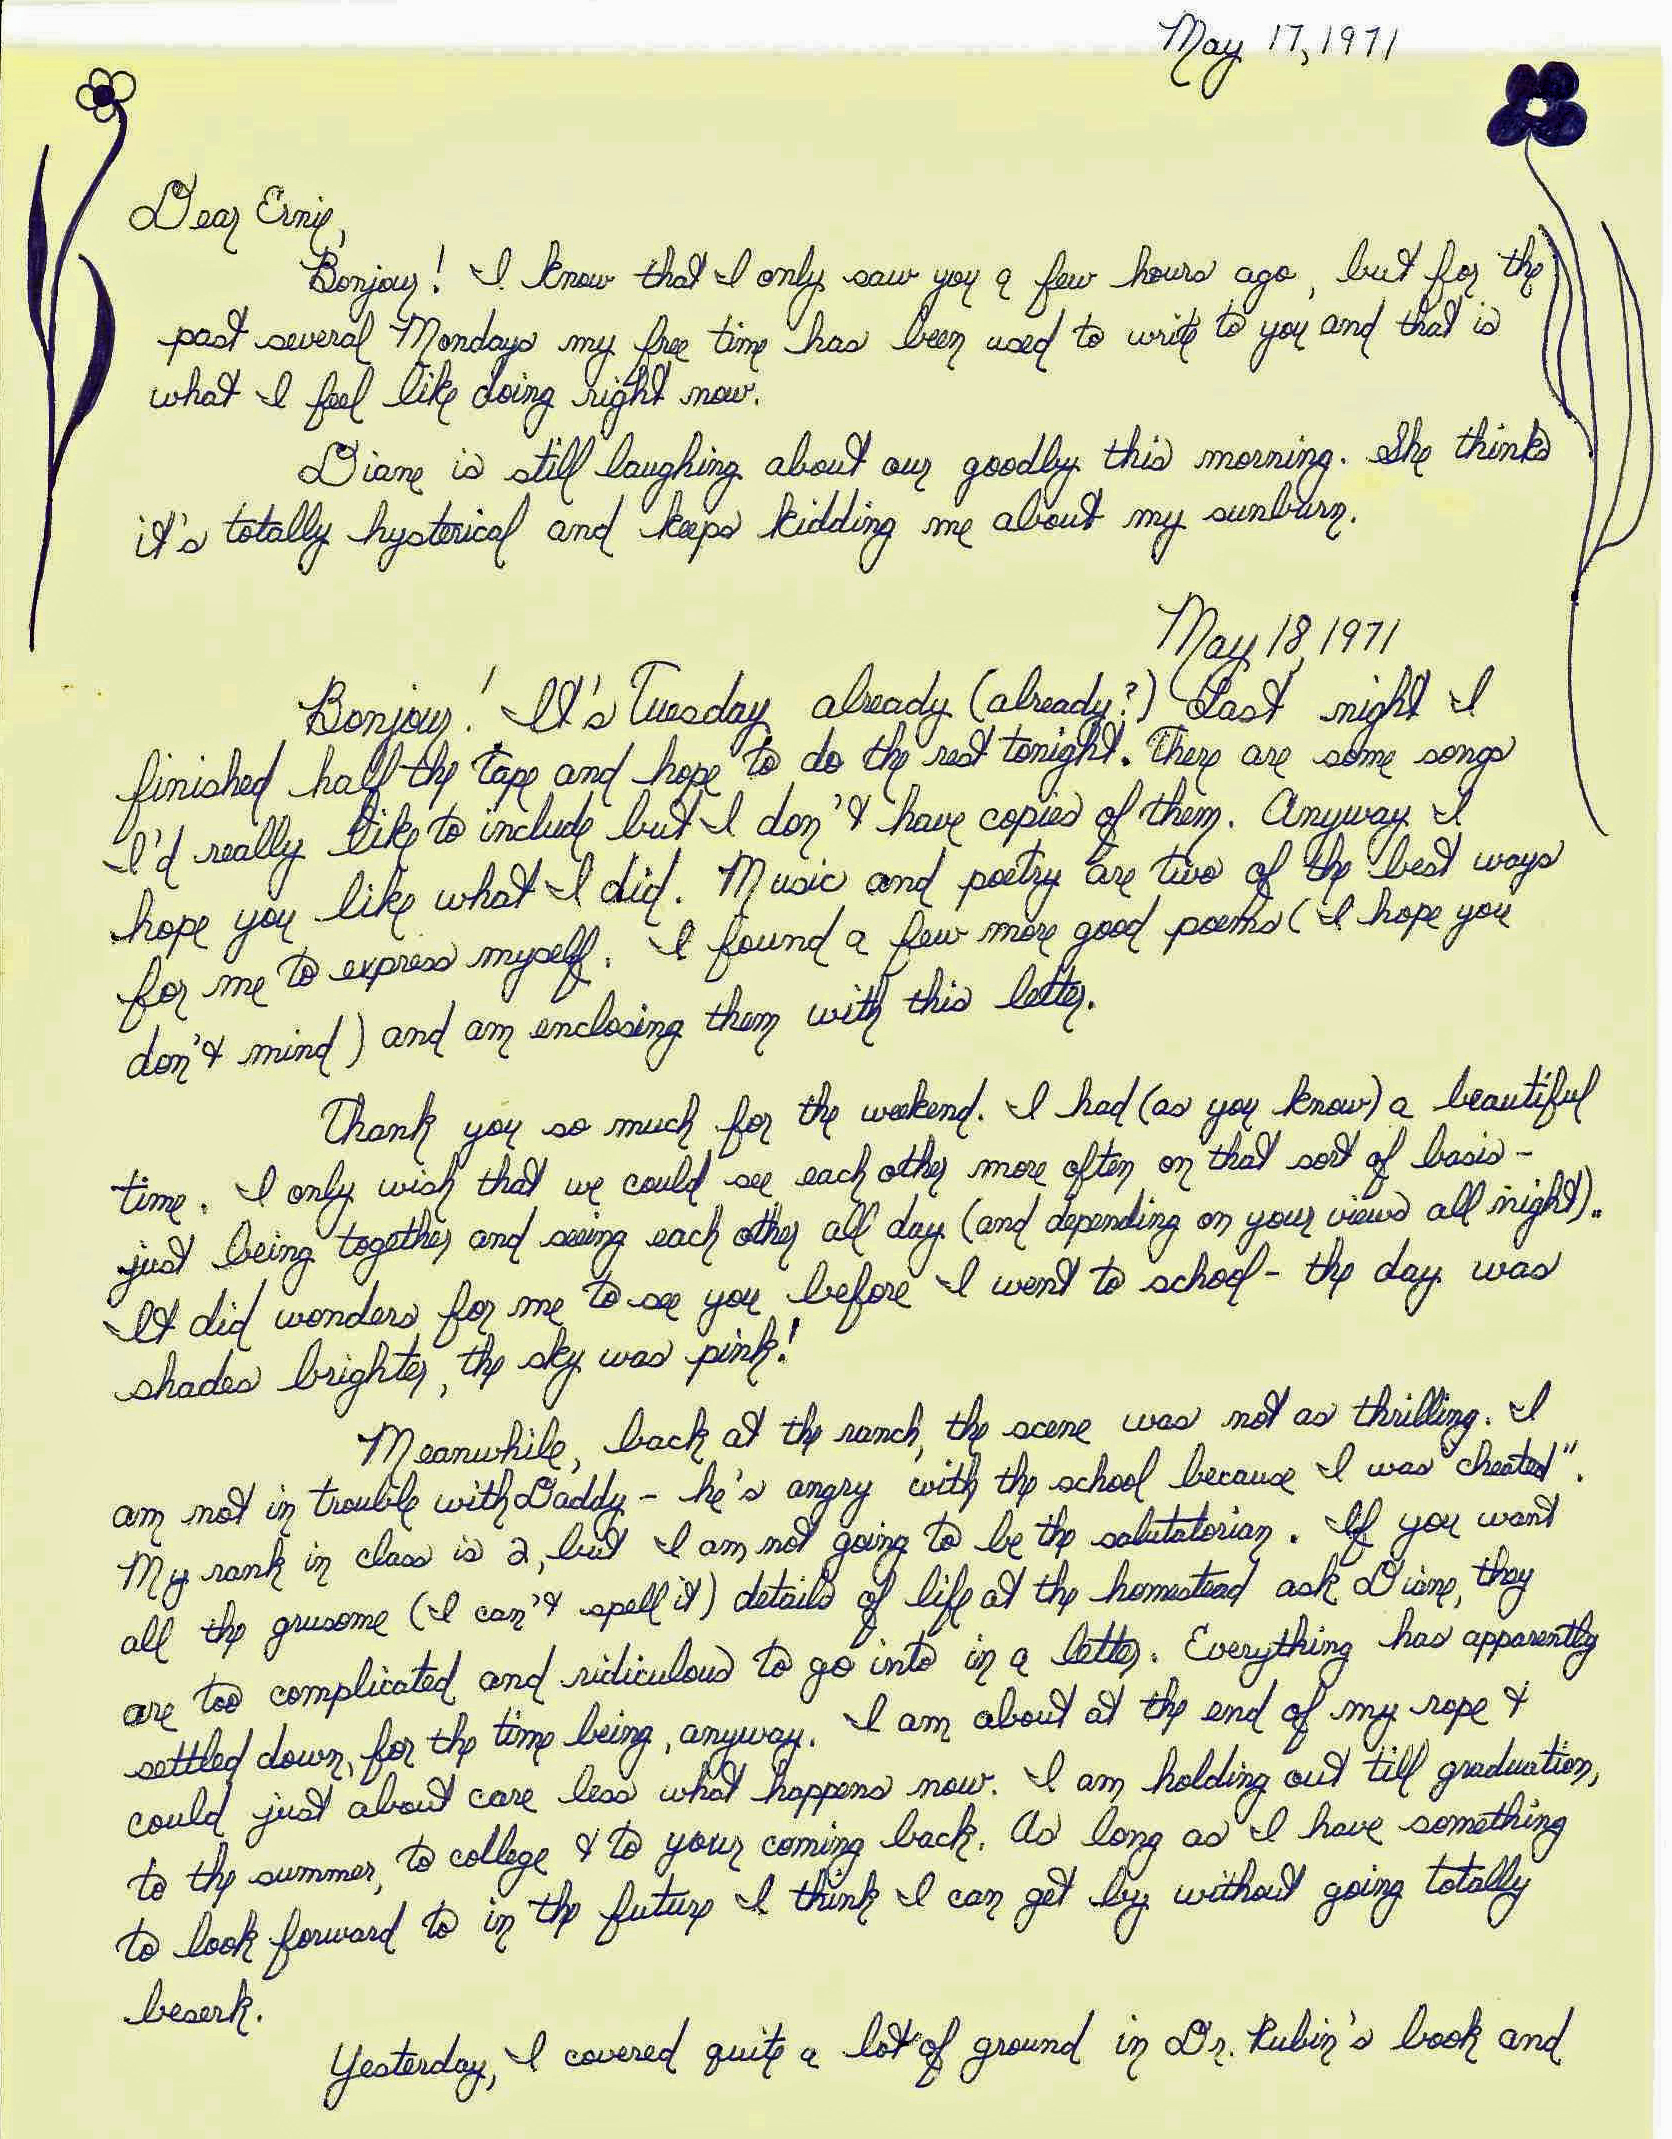 May 17, 1971
Dear Ernie,
Bonjour! I know that I only saw you a few hours ago, but for the
past several Mondays my free time has been used to write to you and that is
what I feel like doing right now.
Diane is still laughing about our goodby this morning. She thinks
it's totally hysterical and keeps kidding me about my sunburn.
May 18, 1971
Bonjour! It's Tuesday already (already?) Last night I
finished half the tape and hope to do the rest tonight. There are some songs
I'd really like to include but I don't have copies of them. Anyway I
hope you like what I did. Music and poetry are two of the best ways
for me to express myself. I found a few more good poems (I hope you
don't mind) and am enclosing them with this letter.
Thank you so much for the weekend. I had (as you know) a beautiful
time. I only wish that we could see each other more often on that sort of basis -
just being together and seeing each other all day (and depending on your views all night)..
It did wonders for me to see you before I went to school - the day was
shades brighter, the sky was pink!
Meanwhile, back at the ranch, the scene was not as thrilling. I
am not in trouble with Daddy - he's angry with the school because I was "cheated".
My rank in class is 2, but I am not going to be the salutatorian. If you want
all the grusome (I can't spell it) details of life at the homestead ask Diane, they
are too complicated and ridiculous to go into in a letter. Everything has apparently
settled down, for the time being, anyway. I am about at the end of my rope &
could just about care less what happens now. I am holding out till graduation,
to the summer, to college & to your coming back. As long as I have something
to look forward to in the future I think I can get by without going totally
beserk.
Yesterday, I covered quite a lot of ground in Dr. Rubin's book and